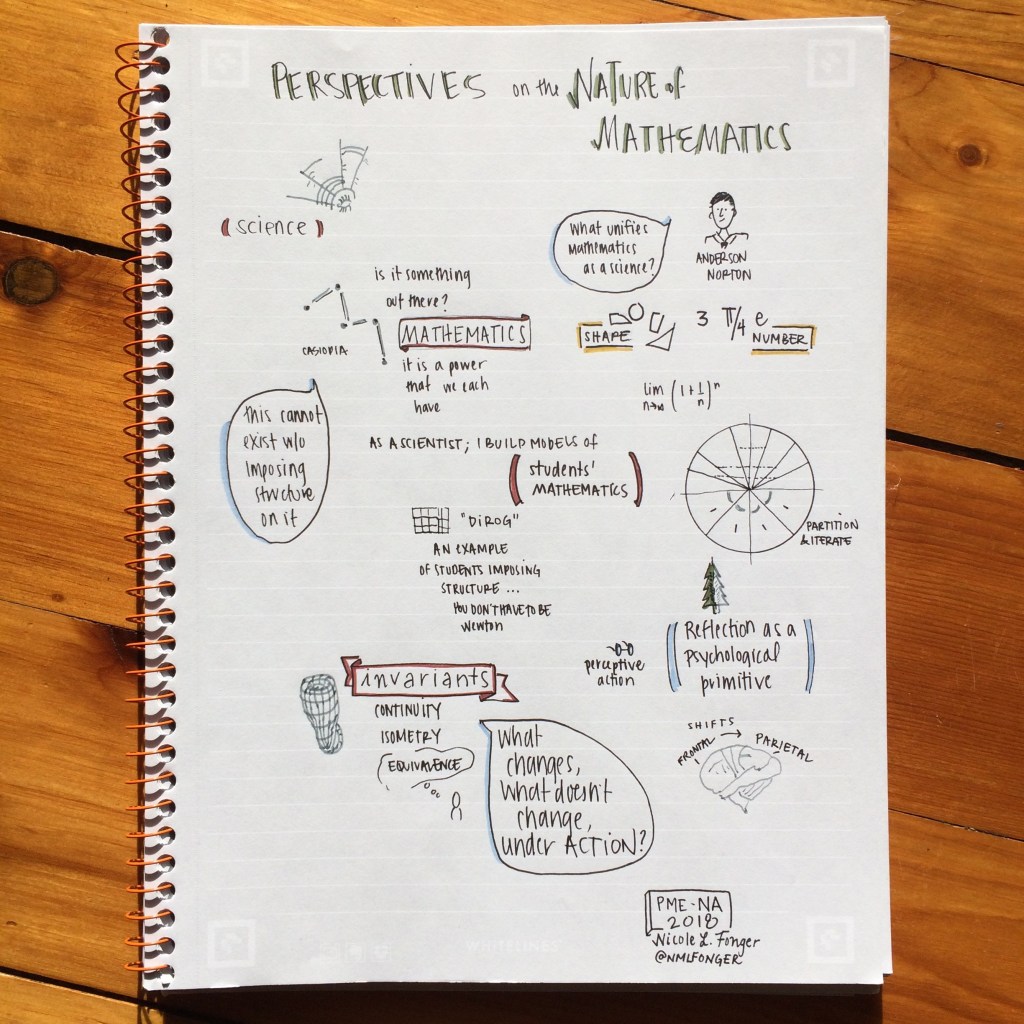 PERSPECTIVES on the NATURE of
MATHEMATICS
(science)
What unifies
mathematics
as a science?
ANDERSON
NORTON
is it something
out there?
MATHEMATICS
it is a power
that we each
have
CASIOPIA
SHAPE
3 π/4 e
NUMBER
lim (1+1/n)^n
n→∞
this cannot
exist w/o
imposing
structure
on it
AS A SCIENTIST; I BUILD MODELS of
(students'
MATHEMATICS)
PARTITION
& ITERATE
"DIROG"
AN EXAMPLE
OF STUDENTS IMPOSING
STRUCTURE ...
YOU DON'T HAVE TO BE
Newton
perceptive
action
(Reflection as a
psychological
primitive)
invariants
CONTINUITY
ISOMETRY
EQUIVALENCE
What
changes,
what doesn't
change,
under ACTION?
SHIFTS
FRONTAL → PARIETAL
PME-NA
2018
Nicole L. Fonger
@NMLFONGER
WHITELINES